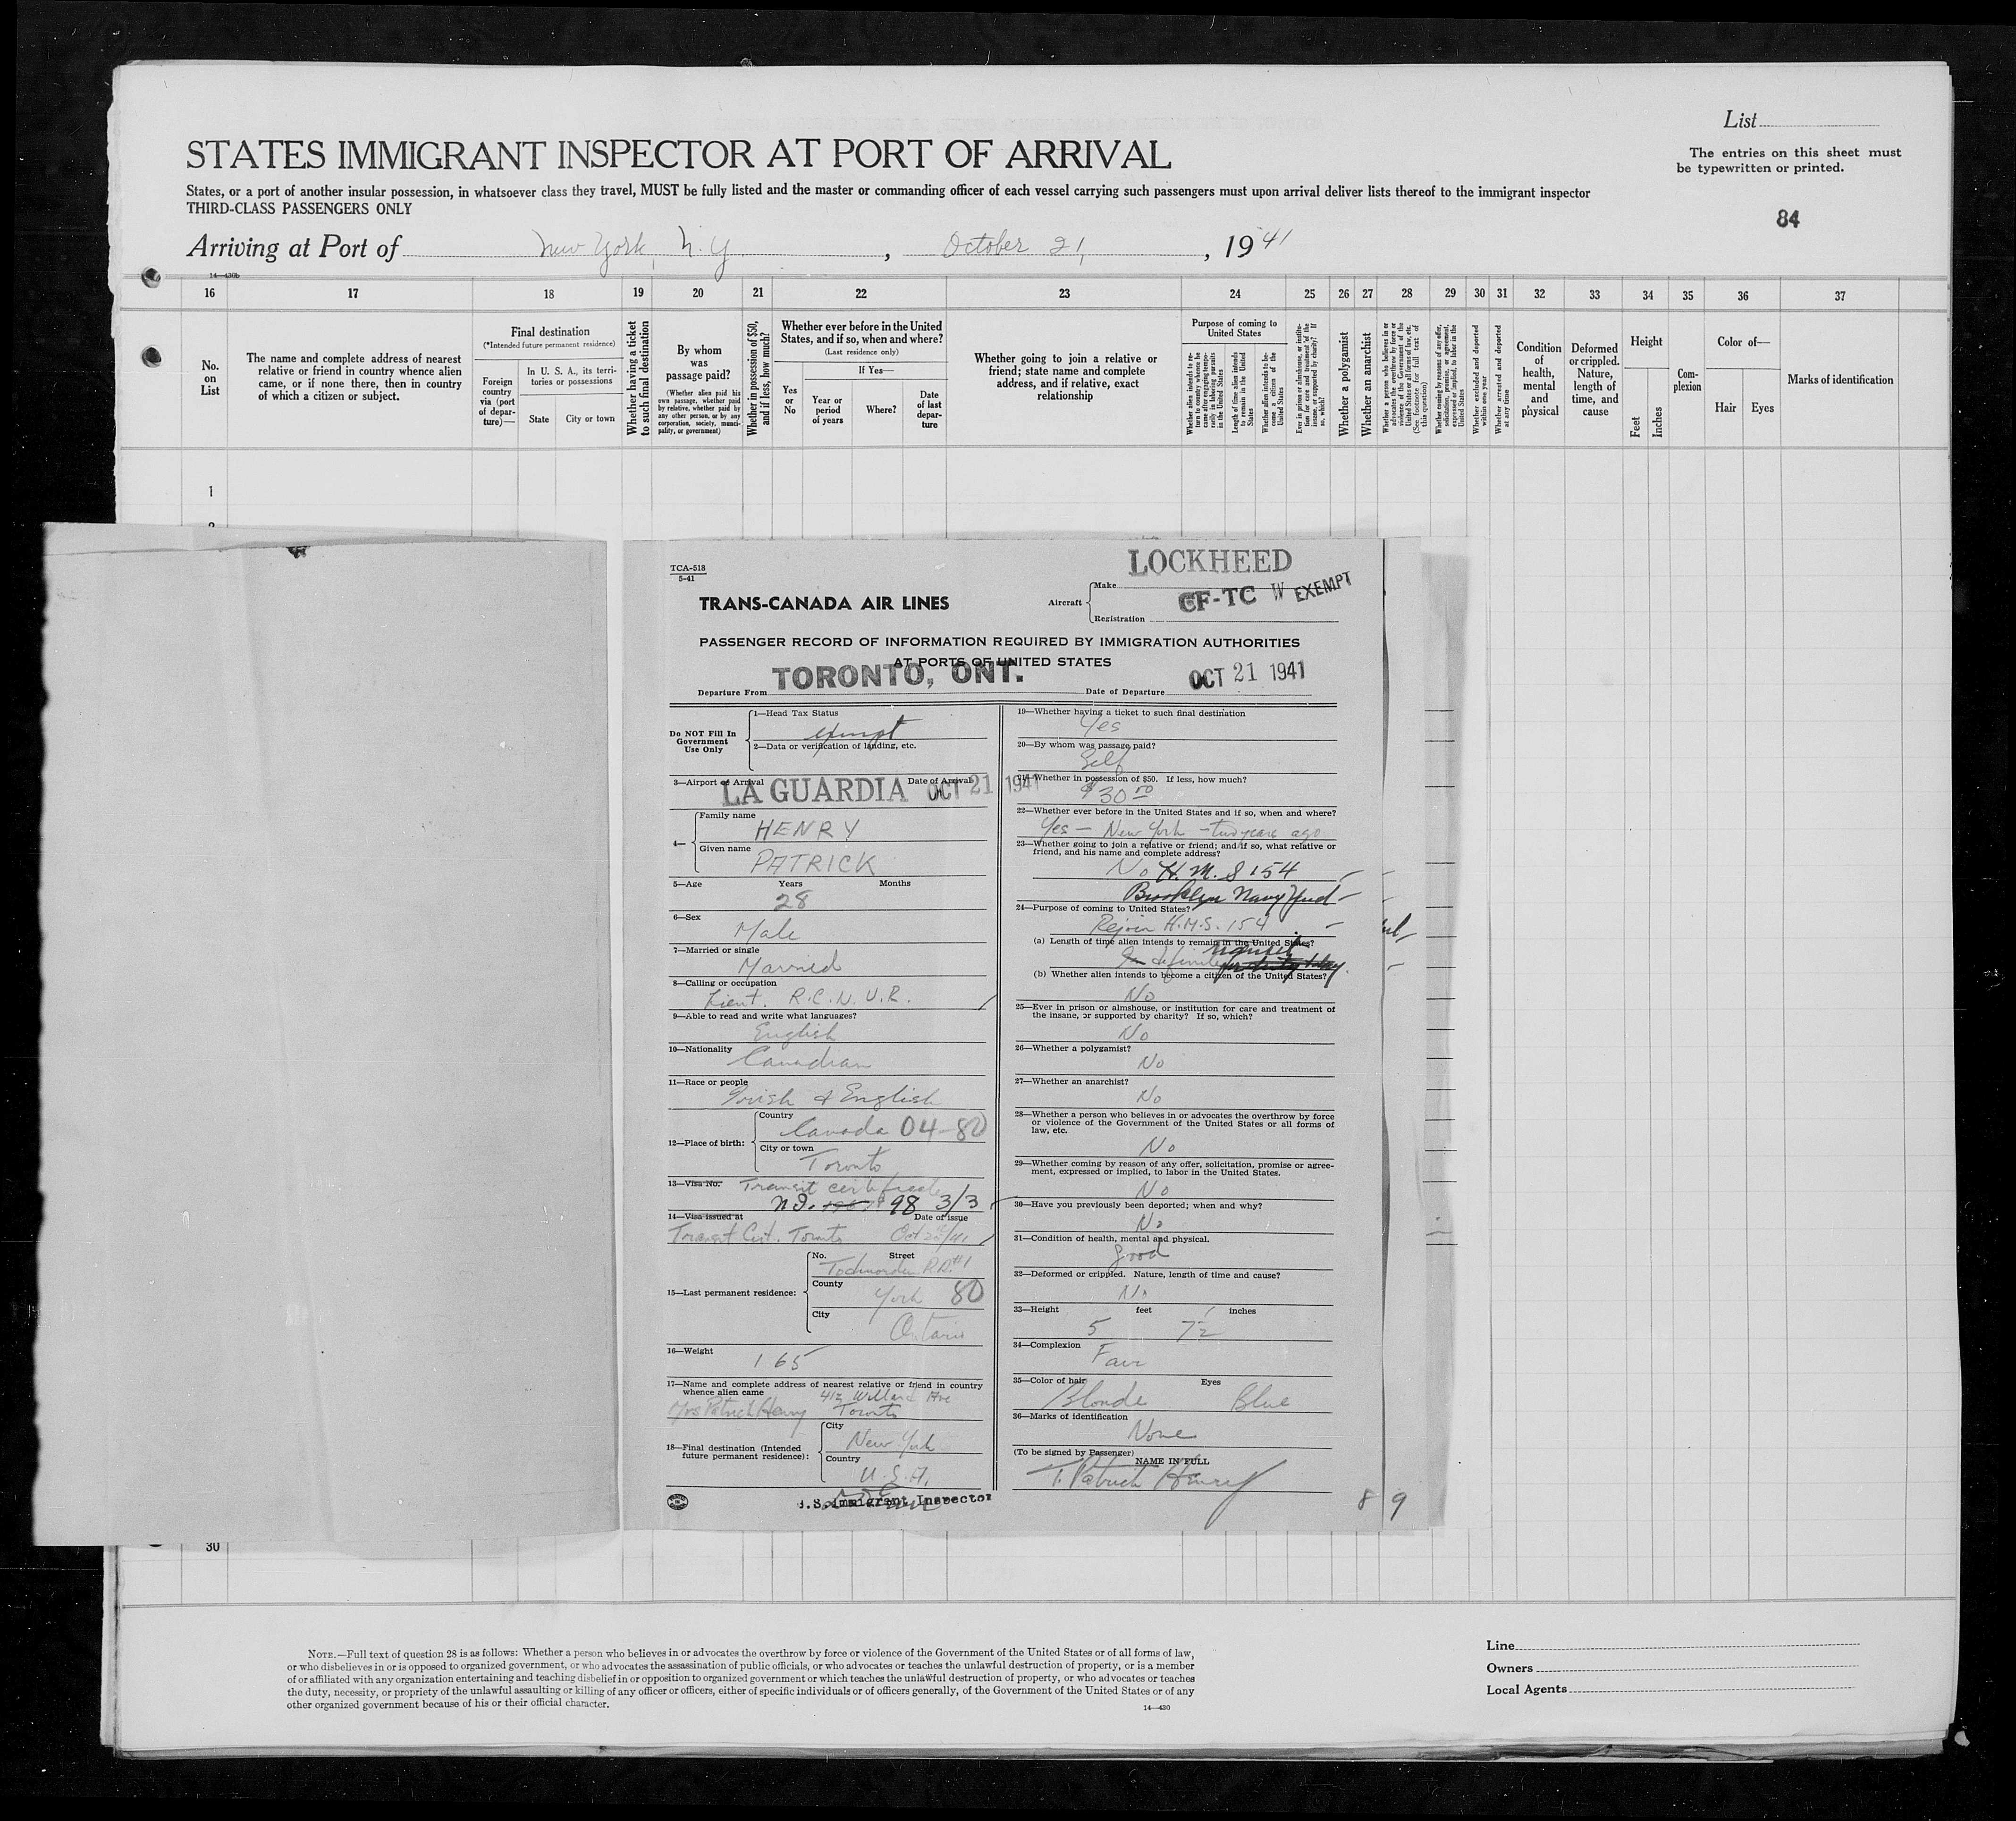 List
STATES IMMIGRANT INSPECTOR AT PORT OF ARRIVAL
The entries on this sheet must
be typewritten or printed.
States, or a port of another insular possession, in whatsoever class they travel, MUST be fully listed and the master or commanding officer of each vessel carrying such passengers must upon arrival deliver lists thereof to the immigrant inspector
THIRD-CLASS PASSENGERS ONLY
84
Arriving at Port of New York, N.Y , October 21, , 1941
14—430b
16 17 18 19 20 21 22 23 24 25 26 27 28 29 30 31 32 33 34 35 36 37
No. on List
The name and complete address of nearest relative or friend in country whence alien came, or if none there, then in country of which a citizen or subject.
Final destination
(*Intended future permanent residence)
Foreign country via (port of departure)—
In U. S. A., its territories or possessions
State City or town
Whether having a ticket to such final destination
By whom was passage paid?
(Whether alien paid his own passage, whether paid by relative, whether paid by any other person, or by any corporation, society, municipality, or government)
Whether in possession of $50, and if less, how much?
Whether ever before in the United States, and if so, when and where?
(Last residence only)
Yes or No
If Yes—
Year or period of years
Where?
Date of last departure
Whether going to join a relative or friend; state name and complete address, and if relative, exact relationship
Purpose of coming to United States
Whether alien intends to return to country whence he came after engaging temporarily in laboring pursuits in the United States
Length of time alien intends to remain in the United States
Whether alien intends to become a citizen of the United States
Ever in prison or almshouse, or institution for care and treatment of the insane, or supported by charity? If so, which?
Whether a polygamist
Whether an anarchist
Whether a person who believes in or advocates the overthrow by force or violence of the Government of the United States or all forms of law, etc. (See footnote for full text of this question)
Whether coming by reason of any offer, solicitation, promise, or agreement, expressed or implied, to labor in the United States
Whether excluded and deported within one year
Whether arrested and deported at any time
Condition of health, mental and physical
Deformed or crippled. Nature, length of time, and cause
Height
Feet Inches
Complexion
Color of—
Hair Eyes
Marks of identification
1
TCA-518
5-41
LOCKHEED
TRANS-CANADA AIR LINES
Aircraft Make
CF-TC W EXEMPT
Registration
PASSENGER RECORD OF INFORMATION REQUIRED BY IMMIGRATION AUTHORITIES
AT PORTS OF UNITED STATES
Departure From TORONTO, ONT. Date of Departure OCT 21 1941
Do NOT Fill In
Government
Use Only
1—Head Tax Status
exempt
2—Data or verification of landing, etc.
3—Airport of Arrival LA GUARDIA Date of Arrival OCT 21 1941
4— Family name HENRY
Given name PATRICK
5—Age Years Months
28
6—Sex
Male
7—Married or single
Married
8—Calling or occupation
Lieut. R.C.N.V.R.
9—Able to read and write what languages?
English
10—Nationality
Canadian
11—Race or people
Irish & English
12—Place of birth: Country
Canada 04-80
City or town
Toronto
13—Visa No. Transit certificate
N.I. 98 3/3
14—Visa issued at Date of issue
Transit Cert. Toronto Oct 20/41
15—Last permanent residence: No. Street
Todmorden R.R.#1
County
York 80
City
Ontario
16—Weight
165
17—Name and complete address of nearest relative or friend in country
whence alien came 412 Willard Ave
Mrs Patrick Henry Toronto
18—Final destination (Intended
future permanent residence): City
New York
Country
U.S.A.
U.S. Immigrant Inspector
19—Whether having a ticket to such final destination
Yes
20—By whom was passage paid?
Self
21—Whether in possession of $50. If less, how much?
$30.00
22—Whether ever before in the United States and if so, when and where?
Yes — New York - two years ago
23—Whether going to join a relative or friend; and if so, what relative or
friend, and his name and complete address?
No H.M.S 154
Brooklyn Navy Yard
24—Purpose of coming to United States?
Rejoin H.M.S. 154
(a) Length of time alien intends to remain in the United States?
Indefinite transit
(b) Whether alien intends to become a citizen of the United States?
No
25—Ever in prison or almshouse, or institution for care and treatment of
the insane, or supported by charity? If so, which?
No
26—Whether a polygamist?
No
27—Whether an anarchist?
No
28—Whether a person who believes in or advocates the overthrow by force
or violence of the Government of the United States or all forms of
law, etc.
No
29—Whether coming by reason of any offer, solicitation, promise or agree-
ment, expressed or implied, to labor in the United States.
No
30—Have you previously been deported; when and why?
No
31—Condition of health, mental and physical.
Good
32—Deformed or crippled. Nature, length of time and cause?
No
33—Height feet inches
5 7½
34—Complexion
Fair
35—Color of hair Eyes
Blonde Blue
36—Marks of identification
None
(To be signed by Passenger)
NAME IN FULL
T. Patrick Henry
8 9
30
NOTE.—Full text of question 28 is as follows: Whether a person who believes in or advocates the overthrow by force or violence of the Government of the United States or of all forms of law,
or who disbelieves in or is opposed to organized government, or who advocates the assassination of public officials, or who advocates or teaches the unlawful destruction of property, or is a member
of or affiliated with any organization entertaining and teaching disbelief in or opposition to organized government or which teaches the unlawful destruction of property, or who advocates or teaches
the duty, necessity, or propriety of the unlawful assaulting or killing of any officer or officers, either of specific individuals or of officers generally, of the Government of the United States or of any
other organized government because of his or their official character.
14—430
Line
Owners
Local Agents